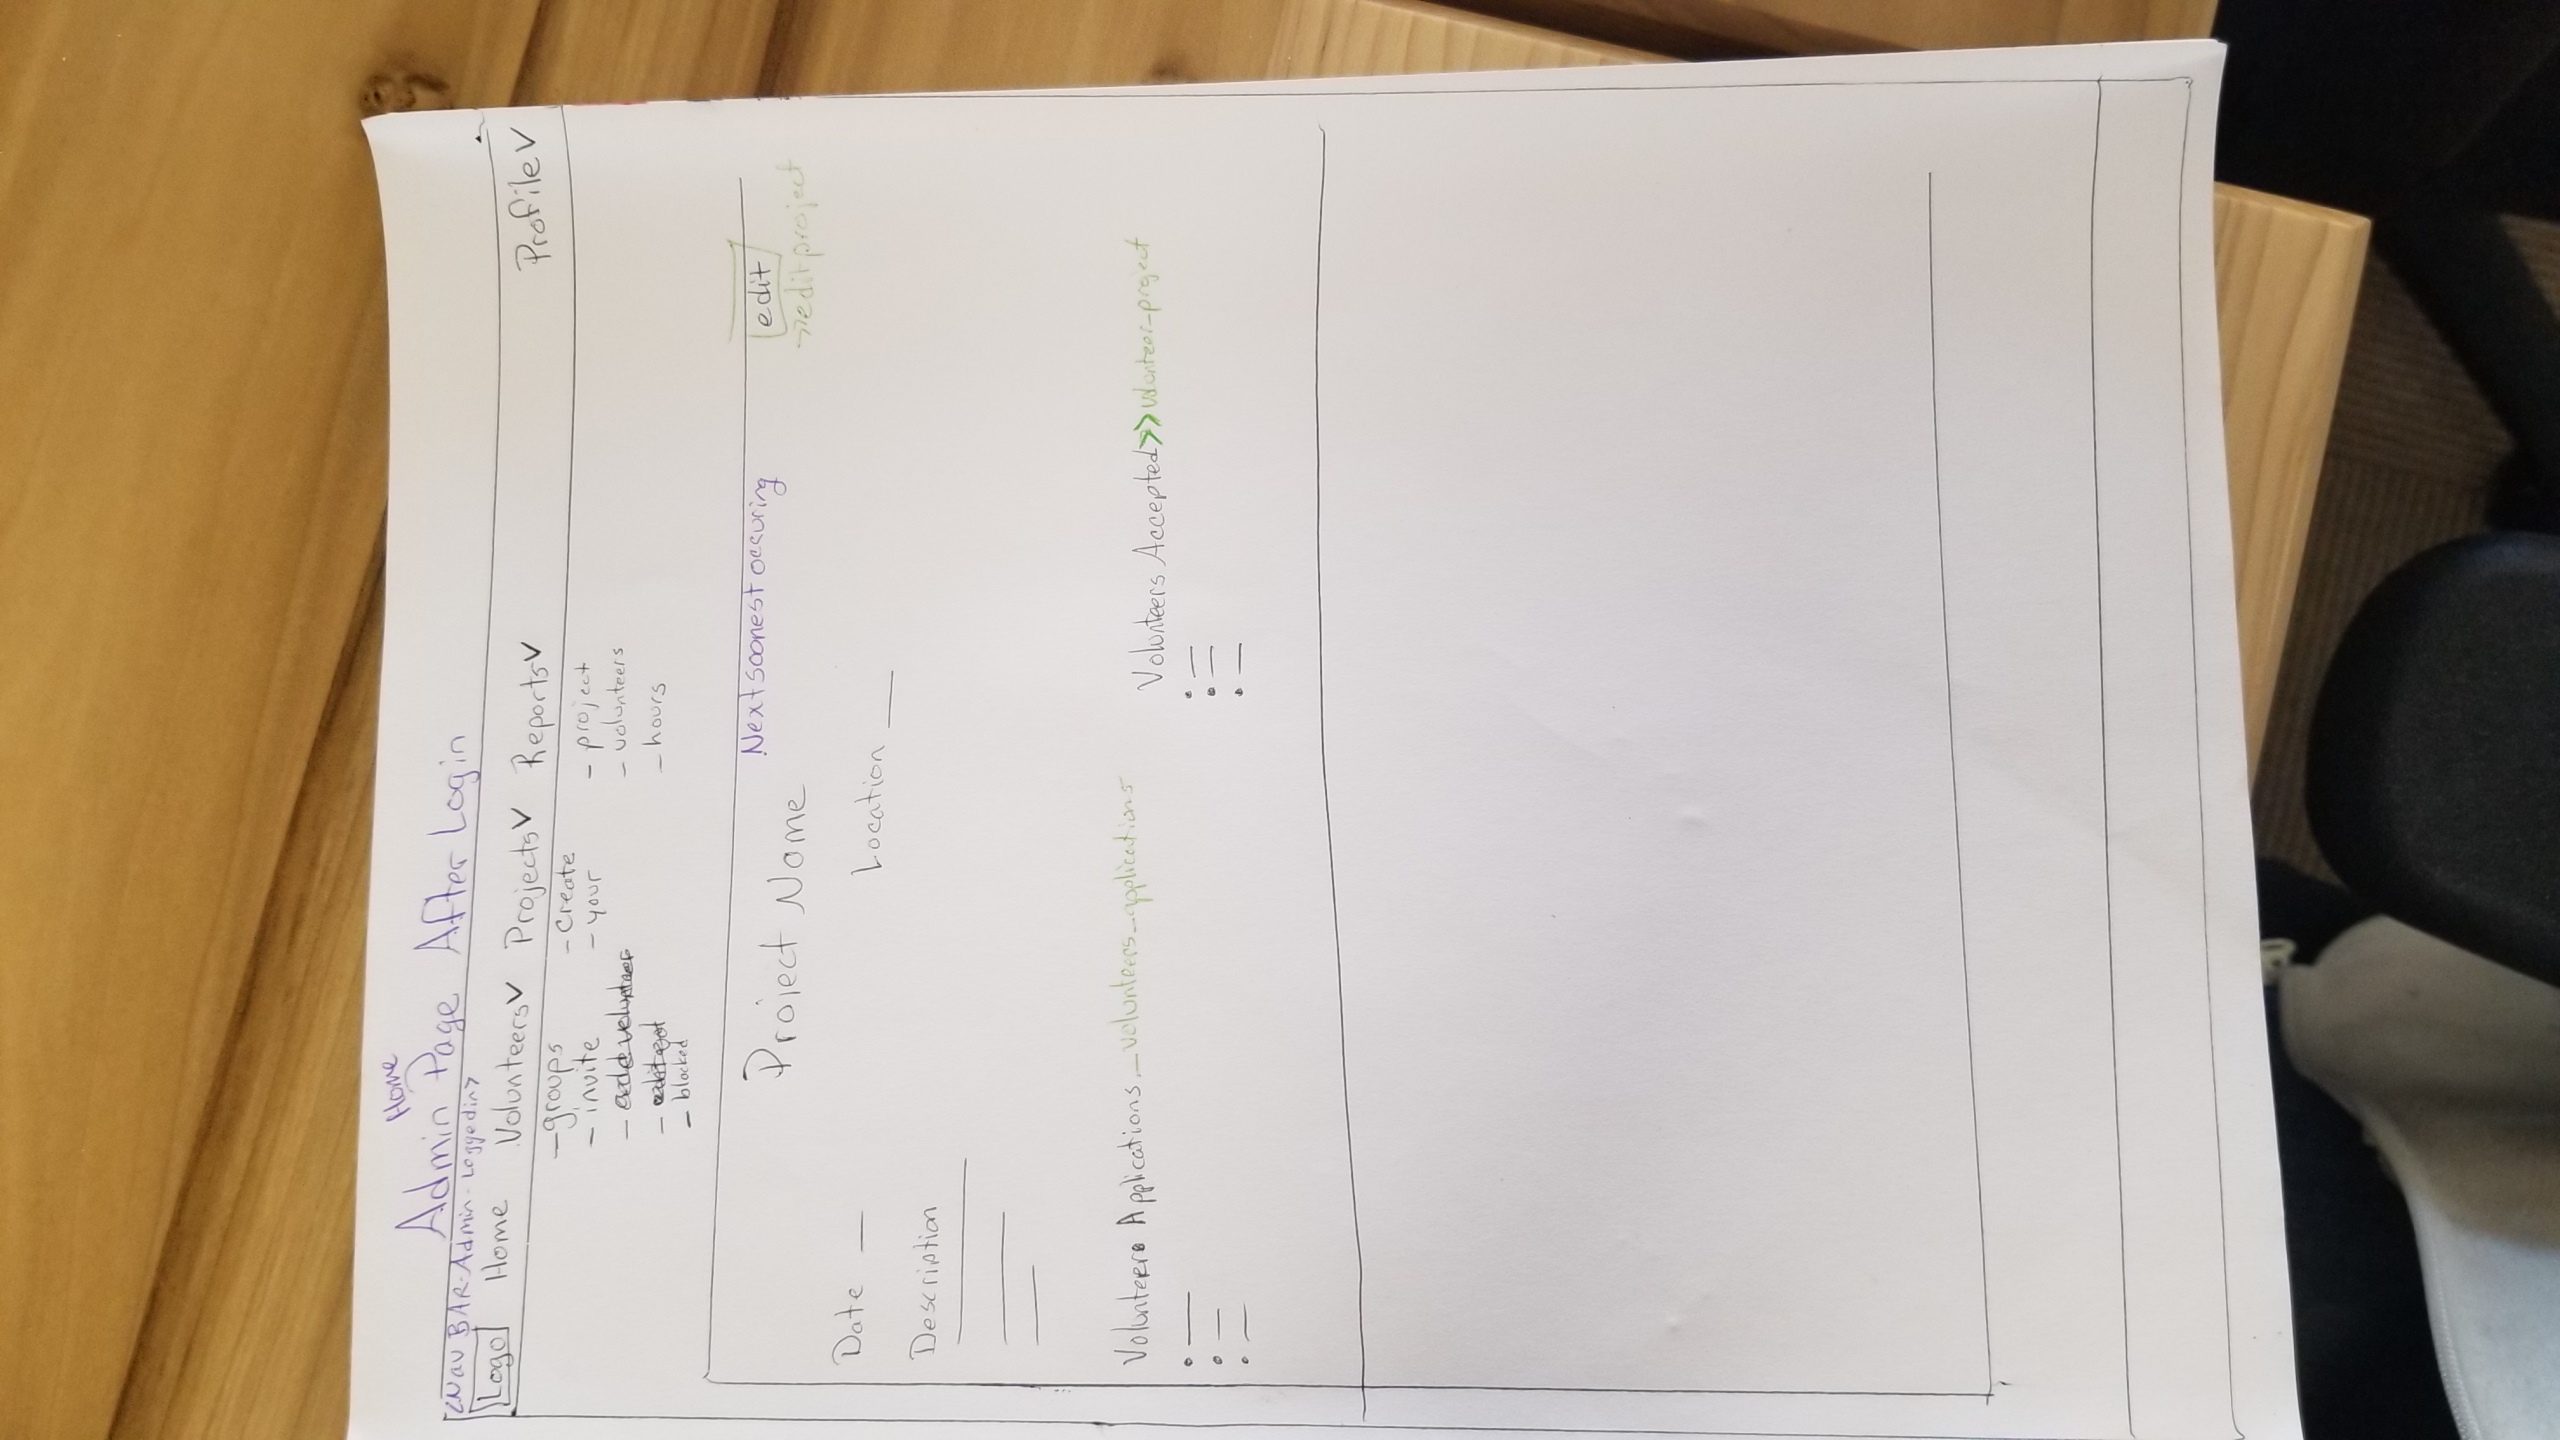 Home
Admin Page After Login
<Nav BAR-Admin-Loggedin>
Logo Home Volunteers V Projects V Reports V Profile V
- groups
- invite
- add volunteer
- blocked
- Create
- your
- project
- volunteers
- hours
Project Name
Next soonest occuring
edit
>>edit project
Date __
Location __
Description
Volunteers Applications _volunteers_applications
Volunteers Accepted >> volunteer_project